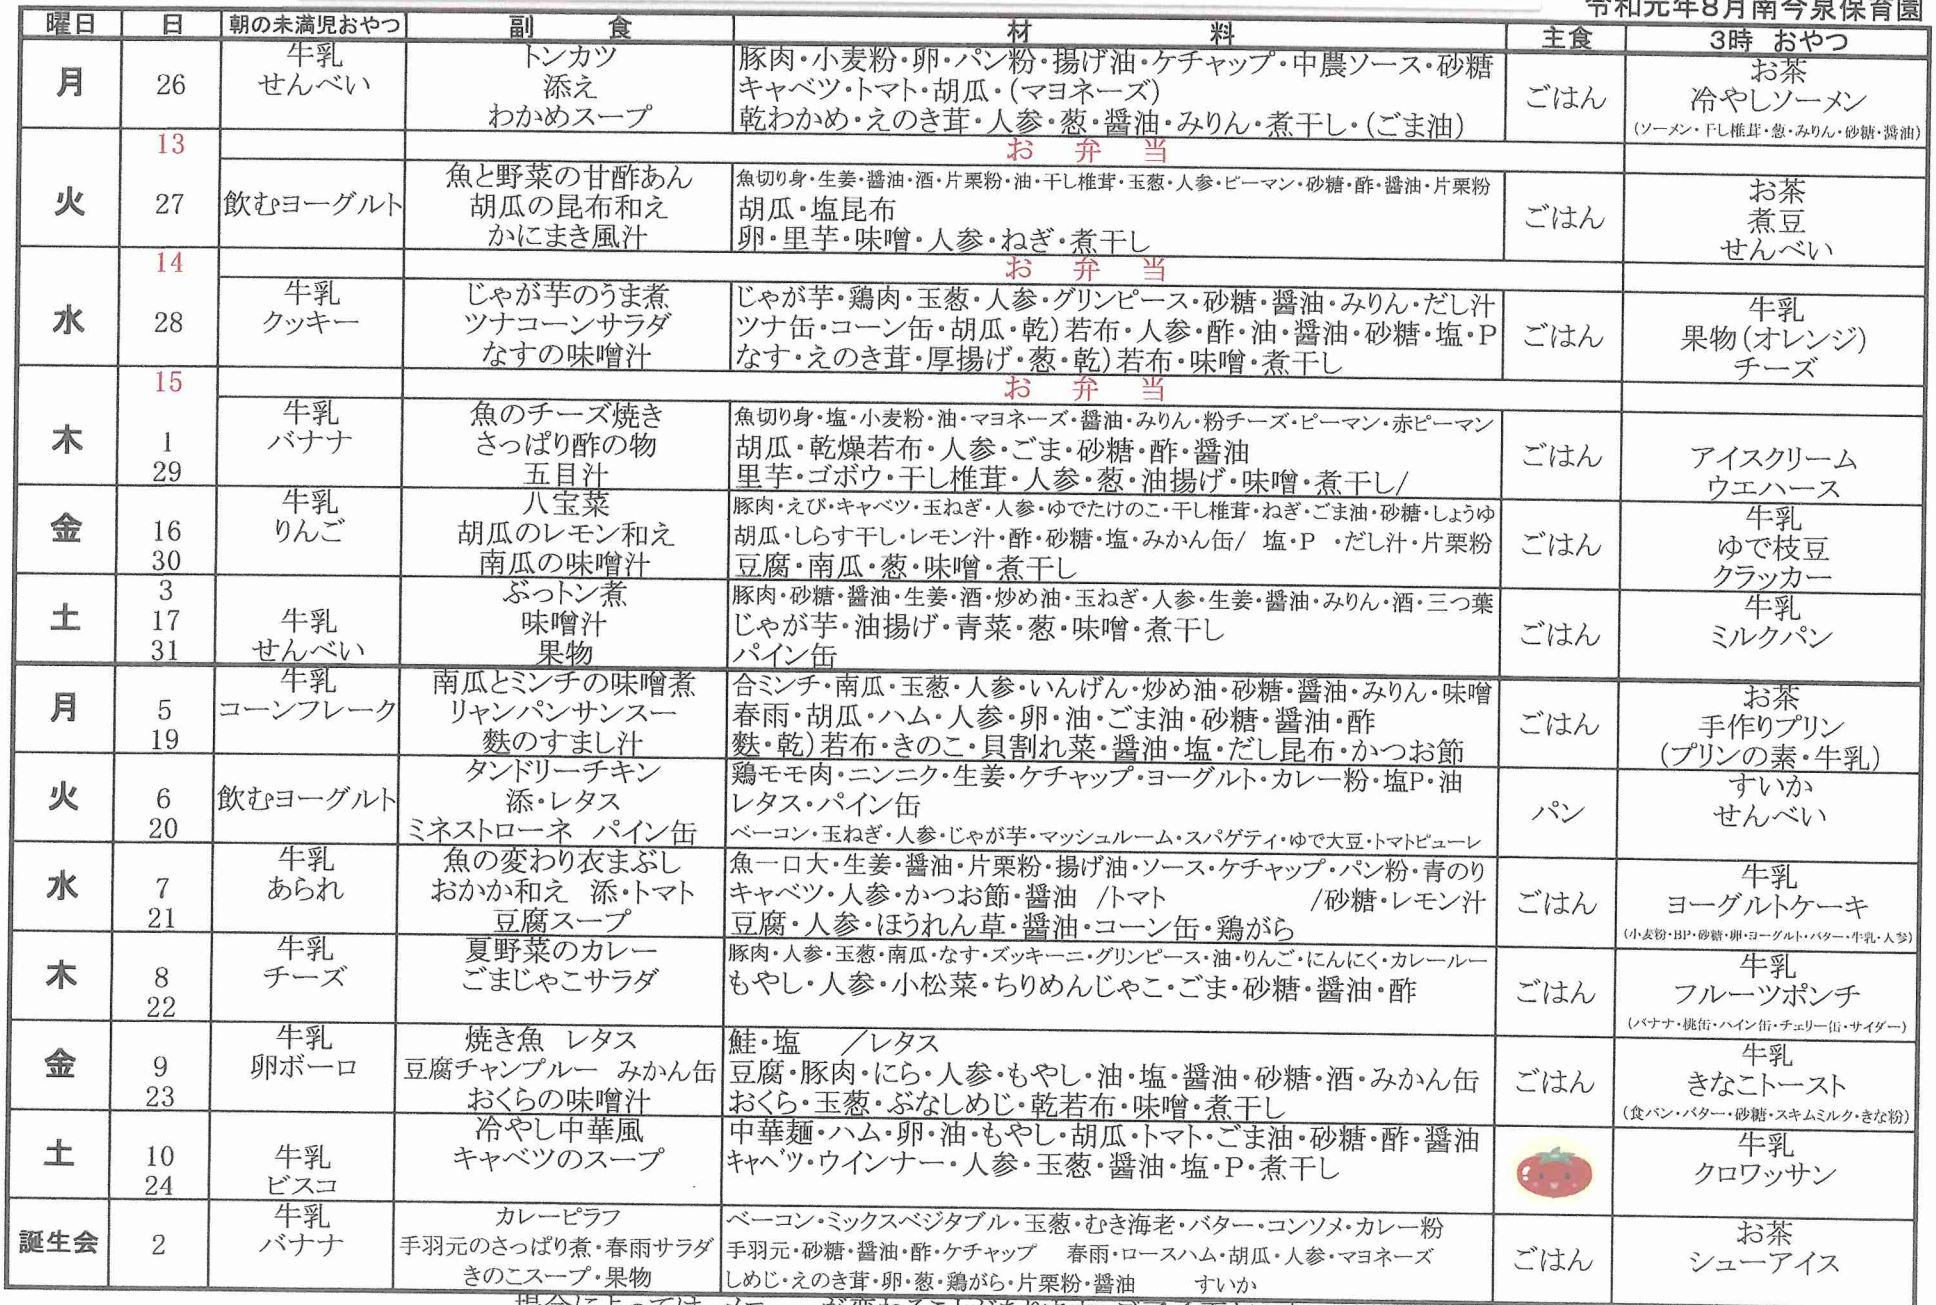 令和元年8月南今泉保育園
曜日 日 朝の未満児おやつ 副 食 材 料 主食 3時 おやつ
月 26
牛乳
せんべい
トンカツ
添え
わかめスープ
豚肉・小麦粉・卵・パン粉・揚げ油・ケチャップ・中農ソース・砂糖
キャベツ・トマト・胡瓜・(マヨネーズ)
乾わかめ・えのき茸・人参・葱・醤油・みりん・煮干し・(ごま油)
ごはん
お茶
冷やしソーメン
(ソーメン・干し椎茸・葱・みりん・砂糖・醤油)
火 13 お 弁 当
27
飲むヨーグルト
魚と野菜の甘酢あん
胡瓜の昆布和え
かにまき風汁
魚切り身・生姜・醤油・酒・片栗粉・油・干し椎茸・玉葱・人参・ピーマン・砂糖・酢・醤油・片栗粉
胡瓜・塩昆布
卵・里芋・味噌・人参・ねぎ・煮干し
ごはん
お茶
煮豆
せんべい
水 14 お 弁 当
28
牛乳
クッキー
じゃが芋のうま煮
ツナコーンサラダ
なすの味噌汁
じゃが芋・鶏肉・玉葱・人参・グリンピース・砂糖・醤油・みりん・だし汁
ツナ缶・コーン缶・胡瓜・乾)若布・人参・酢・油・醤油・砂糖・塩・P
なす・えのき茸・厚揚げ・葱・乾)若布・味噌・煮干し
ごはん
牛乳
果物(オレンジ)
チーズ
木 15 お 弁 当
1
29
牛乳
バナナ
魚のチーズ焼き
さっぱり酢の物
五目汁
魚切り身・塩・小麦粉・油・マヨネーズ・醤油・みりん・粉チーズ・ピーマン・赤ピーマン
胡瓜・乾燥若布・人参・ごま・砂糖・酢・醤油
里芋・ゴボウ・干し椎茸・人参・葱・油揚げ・味噌・煮干し/
ごはん
アイスクリーム
ウエハース
金 16
30
牛乳
りんご
八宝菜
胡瓜のレモン和え
南瓜の味噌汁
豚肉・えび・キャベツ・玉ねぎ・人参・ゆでたけのこ・干し椎茸・ねぎ・ごま油・砂糖・しょうゆ
胡瓜・しらす干し・レモン汁・酢・砂糖・塩・みかん缶/ 塩・P ・だし汁・片栗粉
豆腐・南瓜・葱・味噌・煮干し
ごはん
牛乳
ゆで枝豆
クラッカー
土 3
17
31
牛乳
せんべい
ぶっトン煮
味噌汁
果物
豚肉・砂糖・醤油・生姜・酒・炒め油・玉ねぎ・人参・生姜・醤油・みりん・酒・三つ葉
じゃが芋・油揚げ・青菜・葱・味噌・煮干し
パイン缶
ごはん
牛乳
ミルクパン
月 5
19
牛乳
コーンフレーク
南瓜とミンチの味噌煮
リャンパンサンスー
麩のすまし汁
合ミンチ・南瓜・玉葱・人参・いんげん・炒め油・砂糖・醤油・みりん・味噌
春雨・胡瓜・ハム・人参・卵・油・ごま油・砂糖・醤油・酢
麩・乾)若布・きのこ・貝割れ菜・醤油・塩・だし昆布・かつお節
ごはん
お茶
手作りプリン
(プリンの素・牛乳)
火 6
20
飲むヨーグルト
タンドリーチキン
添・レタス
ミネストローネ パイン缶
鶏モモ肉・ニンニク・生姜・ケチャップ・ヨーグルト・カレー粉・塩P・油
レタス・パイン缶
ベーコン・玉ねぎ・人参・じゃが芋・マッシュルーム・スパゲティ・ゆで大豆・トマトピューレ
パン
すいか
せんべい
水 7
21
牛乳
あられ
魚の変わり衣まぶし
おかか和え 添・トマト
豆腐スープ
魚一口大・生姜・醤油・片栗粉・揚げ油・ソース・ケチャップ・パン粉・青のり
キャベツ・人参・かつお節・醤油 /トマト /砂糖・レモン汁
豆腐・人参・ほうれん草・醤油・コーン缶・鶏がら
ごはん
牛乳
ヨーグルトケーキ
(小麦粉・BP・砂糖・卵・ヨーグルト・バター・牛乳・人参)
木 8
22
牛乳
チーズ
夏野菜のカレー
ごまじゃこサラダ
豚肉・人参・玉葱・南瓜・なす・ズッキーニ・グリンピース・油・りんご・にんにく・カレールー
もやし・人参・小松菜・ちりめんじゃこ・ごま・砂糖・醤油・酢
ごはん
牛乳
フルーツポンチ
(バナナ・桃缶・パイン缶・チェリー缶・サイダー)
金 9
23
牛乳
卵ボーロ
焼き魚 レタス
豆腐チャンプルー みかん缶
おくらの味噌汁
鮭・塩 /レタス
豆腐・豚肉・にら・人参・もやし・油・塩・醤油・砂糖・酒・みかん缶
おくら・玉葱・ぶなしめじ・乾若布・味噌・煮干し
ごはん
牛乳
きなこトースト
(食パン・バター・砂糖・スキムミルク・きな粉)
土 10
24
牛乳
ビスコ
冷やし中華風
キャベツのスープ
中華麺・ハム・卵・油・もやし・胡瓜・トマト・ごま油・砂糖・酢・醤油
キャベツ・ウインナー・人参・玉葱・醤油・塩・P・煮干し
牛乳
クロワッサン
誕生会 2
牛乳
バナナ
カレーピラフ
手羽元のさっぱり煮・春雨サラダ
きのこスープ・果物
ベーコン・ミックスベジタブル・玉葱・むき海老・バター・コンソメ・カレー粉
手羽元・砂糖・醤油・酢・ケチャップ 春雨・ロースハム・胡瓜・人参・マヨネーズ
しめじ・えのき茸・卵・葱・鶏がら・片栗粉・醤油 すいか
ごはん
お茶
シューアイス